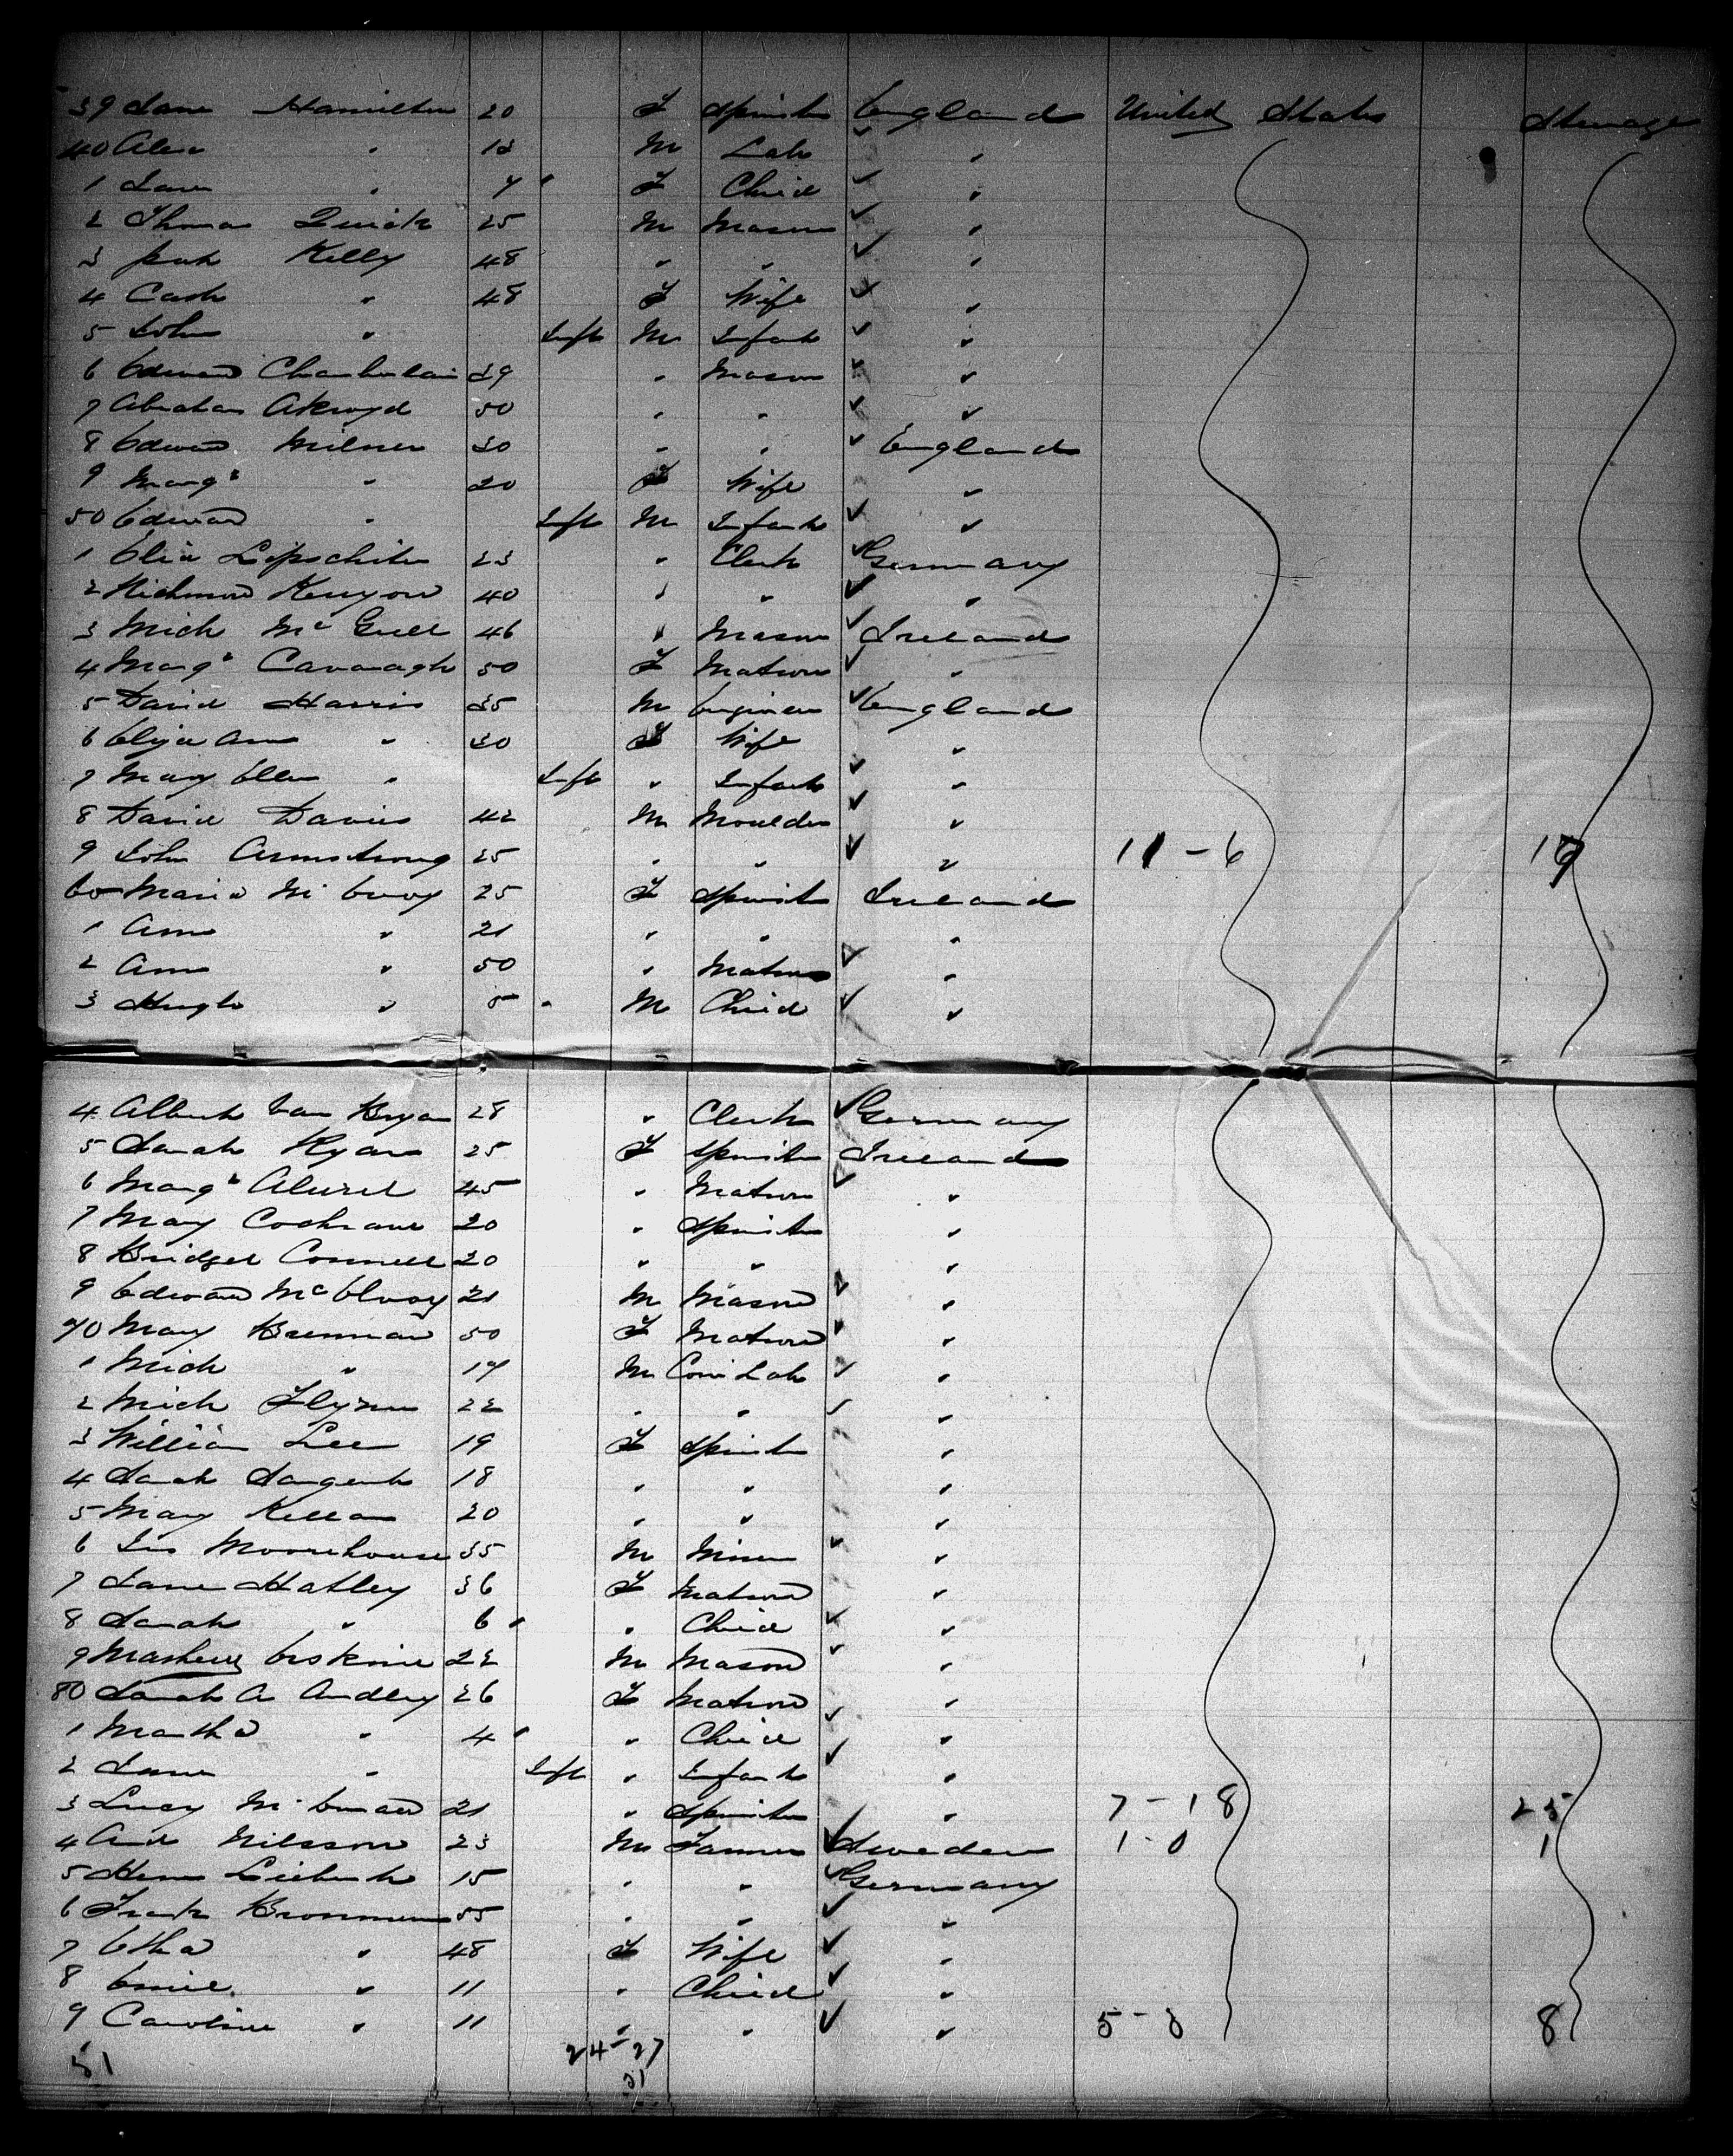 39 Jane Hamilton 20 F Spinster England United States Steerage
40 Alex " 12 M Lab "
1 Jane " 7 " F Child "
2 Thomas Quirk 25 M Mason "
3 Kelly 48 " " "
4 Cath " 48 F Wife "
5 John " Inft M Infant "
6 Edward Chamberlain 39 " Mason "
7 Abraham Akroyd 50 " " "
8 Edward Milner 30 " " England
9 Margt " 20 F Wife "
50 Edward " Inft M Infant "
1 Elia Lipschitz 23 " Clerk Germany
2 Richmond Kenyon 40 " " "
3 Mich Mc Grell 46 " Mason Ireland
4 Margt Cavanagh 50 F Matron "
5 David Harris 35 M Engineer England
6 Eliza Ann " 30 F Wife "
7 Mary Ellen " Inft " Infant "
8 David Davies 42 M Moulder "
9 John Armstrong 25 " " " 11 - 6 17
60 Maria Mc Evoy 25 F Spinst Ireland
1 Ann " 21 " " "
2 Ann " 50 " Matron "
3 Hugh " 8 " M Child "
4 Albert Van Bryan 28 " Clerk Germany
5 Sarah Ryan 25 F Spinster Ireland
6 Margt 45 " Matron "
7 Mary Cochrane 20 " Spinster "
8 Bridget Connell 20 " " "
9 Edward McElvoy 21 M Mason "
70 Mary Brennan 50 F Matron "
1 Mich " 17 M Com Lab "
2 Mich Flynn 22 " " "
3 William Lee 19 F Spinst "
4 Sarah Sargent 18 " " "
5 Mary Kellan 20 " " "
6 Jas Moorehouse 35 M Miner "
7 Jane Hatley 36 F Matron "
8 Sarah " 6 " " Child "
9 Mathew Erskine 22 M Mason "
80 Sarah A Audley 26 F Matron "
1 Martha " 4 " " Child "
2 Jane " Inft " Infant "
3 Lucy 21 " Spinster " 7 - 18 25
4 And Nilsson 23 M Farmer Sweden 1 - 0 1
5 Herm Liebert 15 " " Germany
6 Frank 55 " " "
7 Etha " 48 F Wife "
8 Emil " 11 " Child "
9 Caroline " 11 " " " 5 - 3 8
51 24 - 27
51